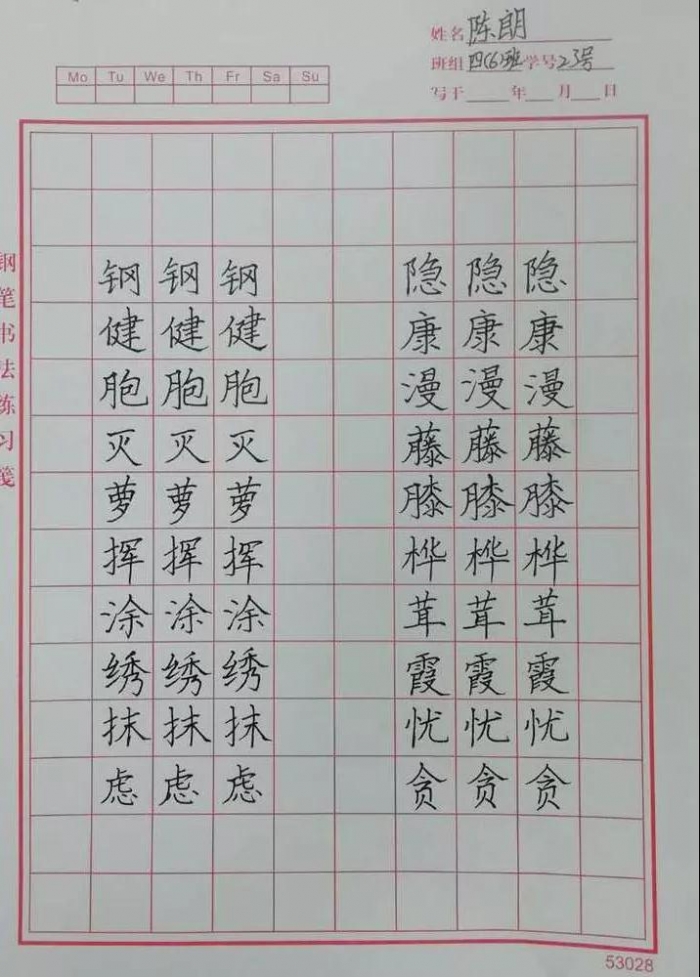 姓名 陈朗
班组 四(6)班 学号 23号
写于 年 月 日
Mo Tu We Th Fr Sa Su
钢笔书法练习笺
钢 钢 钢 隐 隐 隐
健 健 健 康 康 康
胞 胞 胞 漫 漫 漫
灭 灭 灭 藤 藤 藤
萝 萝 萝 膝 膝 膝
挥 挥 挥 桦 桦 桦
涂 涂 涂 茸 茸 茸
绣 绣 绣 霞 霞 霞
抹 抹 抹 忧 忧 忧
虑 虑 虑 贪 贪 贪
53028